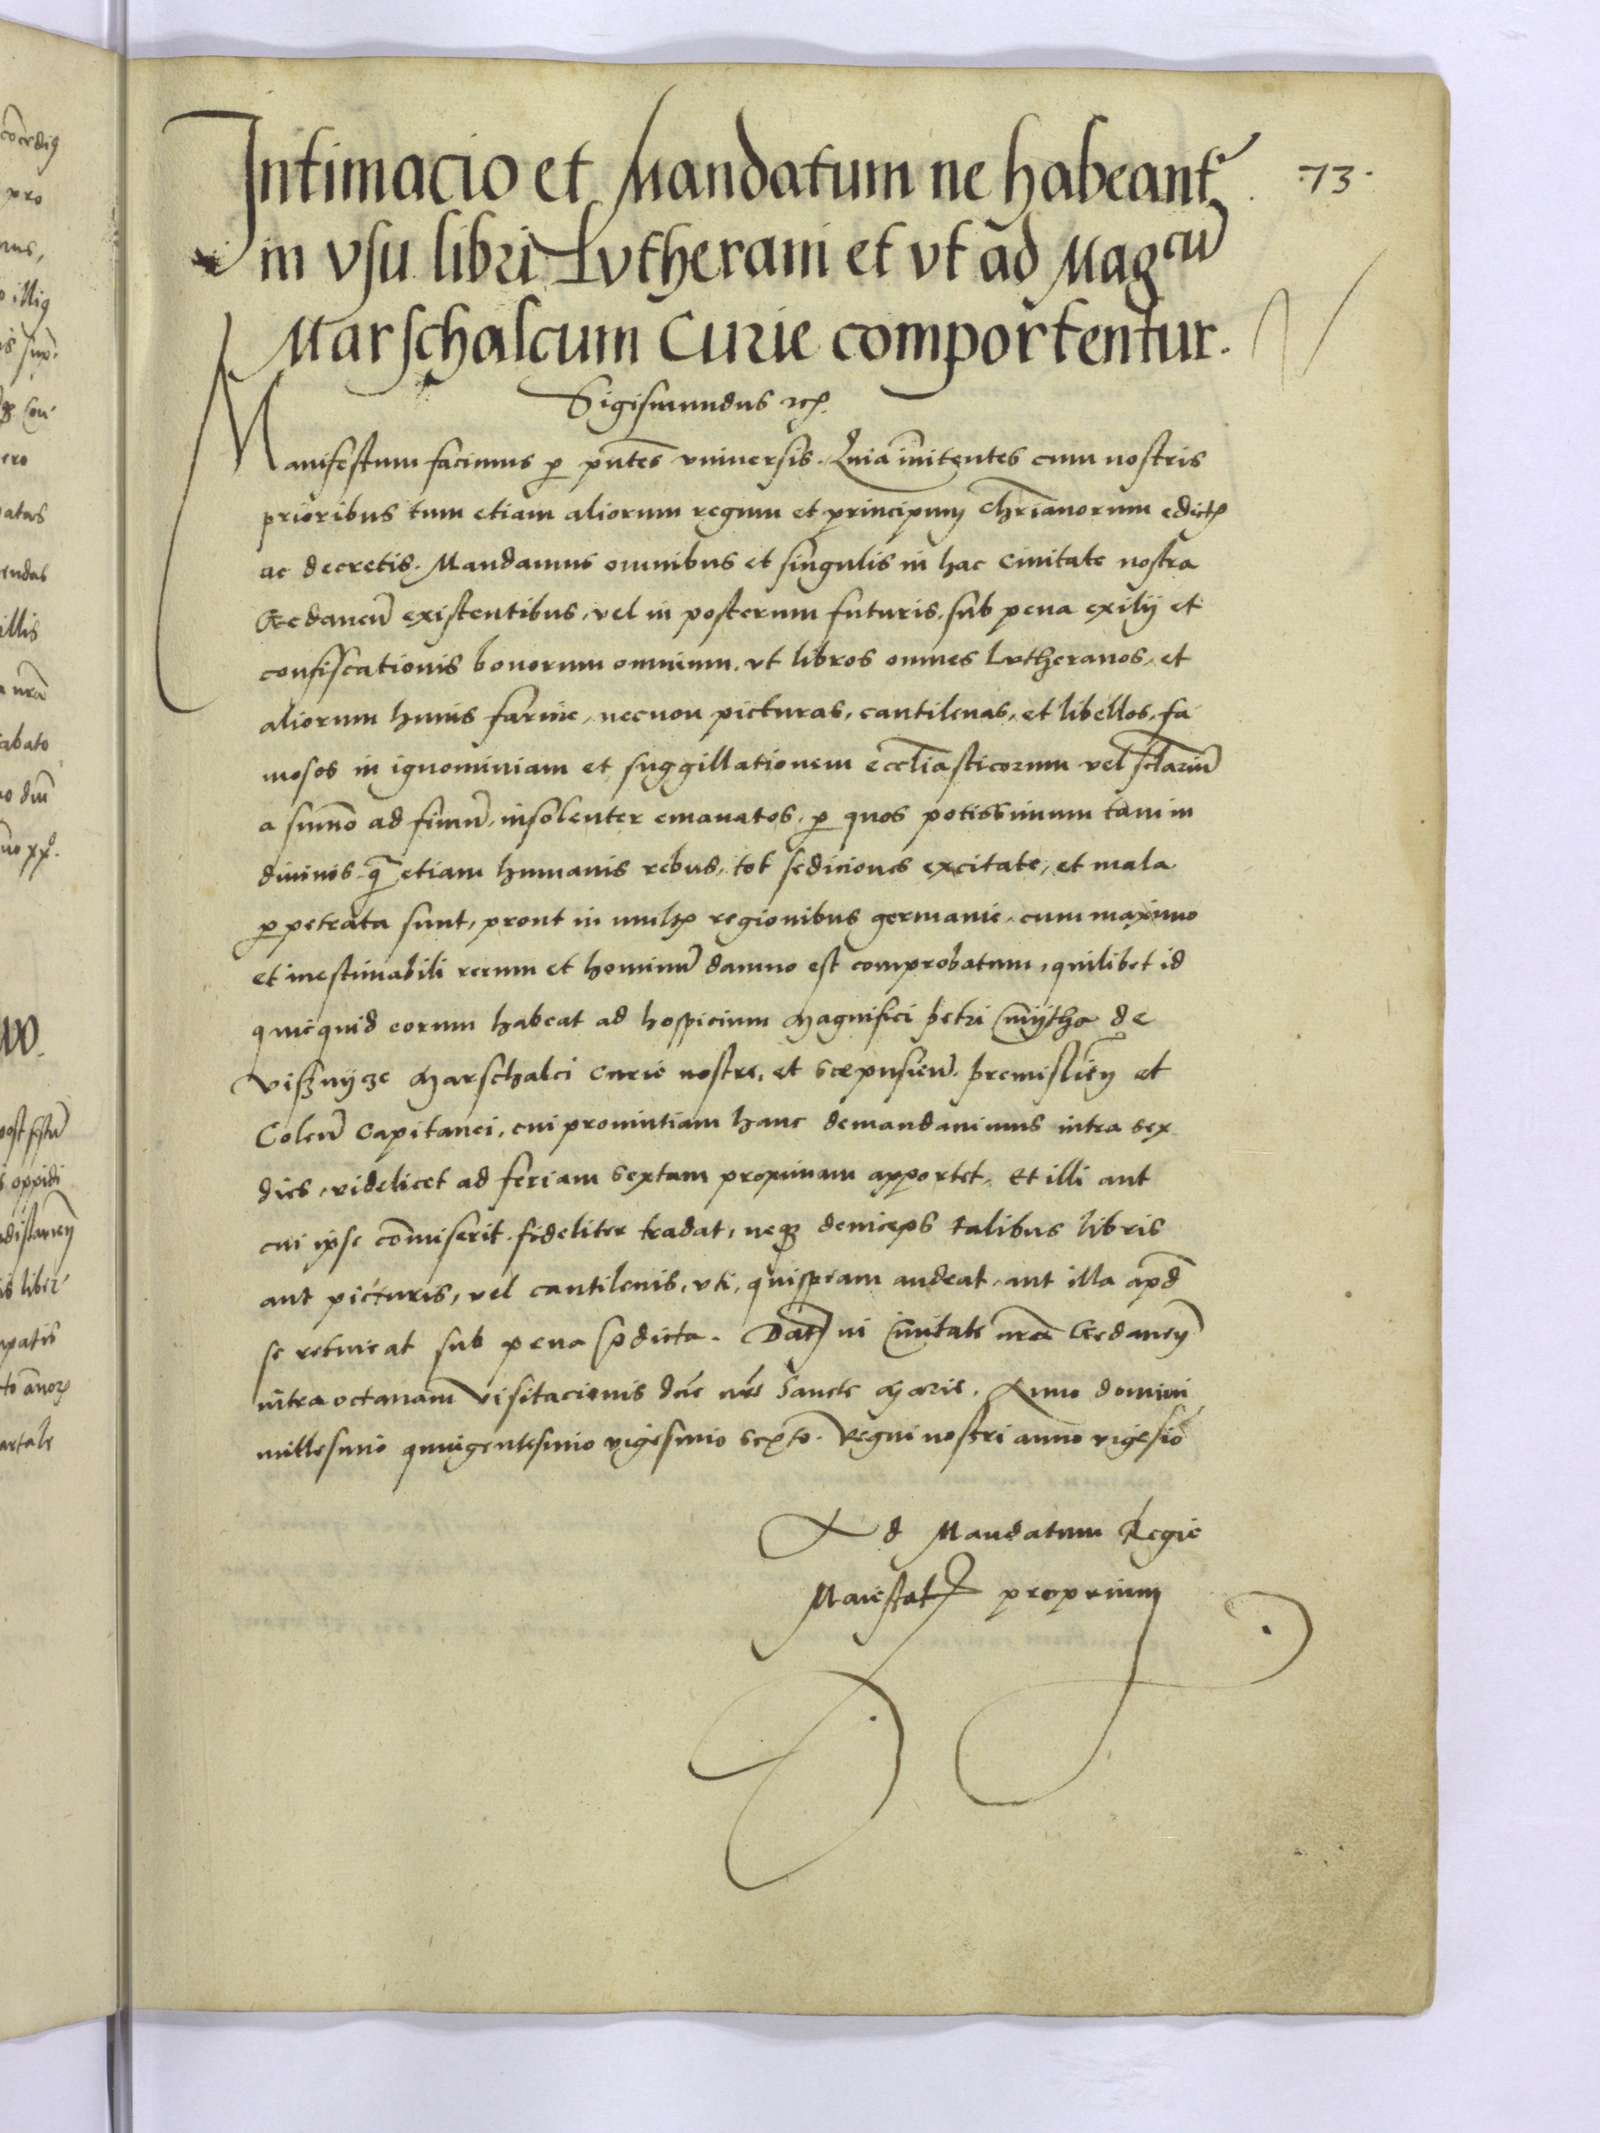 ·73·
Intimacio et Mandatum ne habeant᷑
in vsu libri Lvtherani et vt ad Magcū
Marschalcum Curie comportentur.
Sigismundus rex
Manifestum facimus p pn̄tes vniuersis. Quia īnitentes cum nostris
prioribus tum etiam aliorum regum et principum Chr̄ianorum edictis
ac decretis. Mandamus omnibus et singulis in hac Ciuitate nostra
Gedaneñ existentibus, vel in posterum futuris, sub pena exilij et
confiscationis bonorum omnium, vt libros omnes Lvtheranos, et
aliorum huius farine, necnon picturas, cantilenas, et libellos, fa
mosos in ignominiam et suggillationem eccl̄iasticorum vel scl̄ariū
a sum̄o ad fimū, insolenter emanatos, p quos potissimum tam in
diuinis, q̄ etiam humanis rebus, tot sediciones excitate, et mala
ppetrata sunt, prout in multis regionibus germanie, cum maximo
et inestimabili rerum et hominū damno est comprobatum, quilibet id
quicquid eorum habeat ad hospicium Magnifici petri Cmijtha de
Visznijcze Marschalci Curie nostre, et Scepusieñ. premislieñ et
Coleñ Capitanei, cui prouintiam hanc demandauimus intra sex
dies, videlicet ad feriam sextam proximam apportet, Et illi aut
cui ipse com̄iserit fideliter tradat, neq3 deinceps talibus libris
aut picturis, vel cantilenis, vti, quispiam audeat, aut illa apd̄
se retineat sub pena sp̄dicta. Dat̄ in Ciuitate nr̄a Gedaneñ
intra octauam Visitacionis dn̄e nr̄e Sancte Marie. Anno domini
millesimo quingentesimo vigesimo sexto. Regni nostri anno vigesīo
Ad Mandatum Regie
Maiestatis proprium